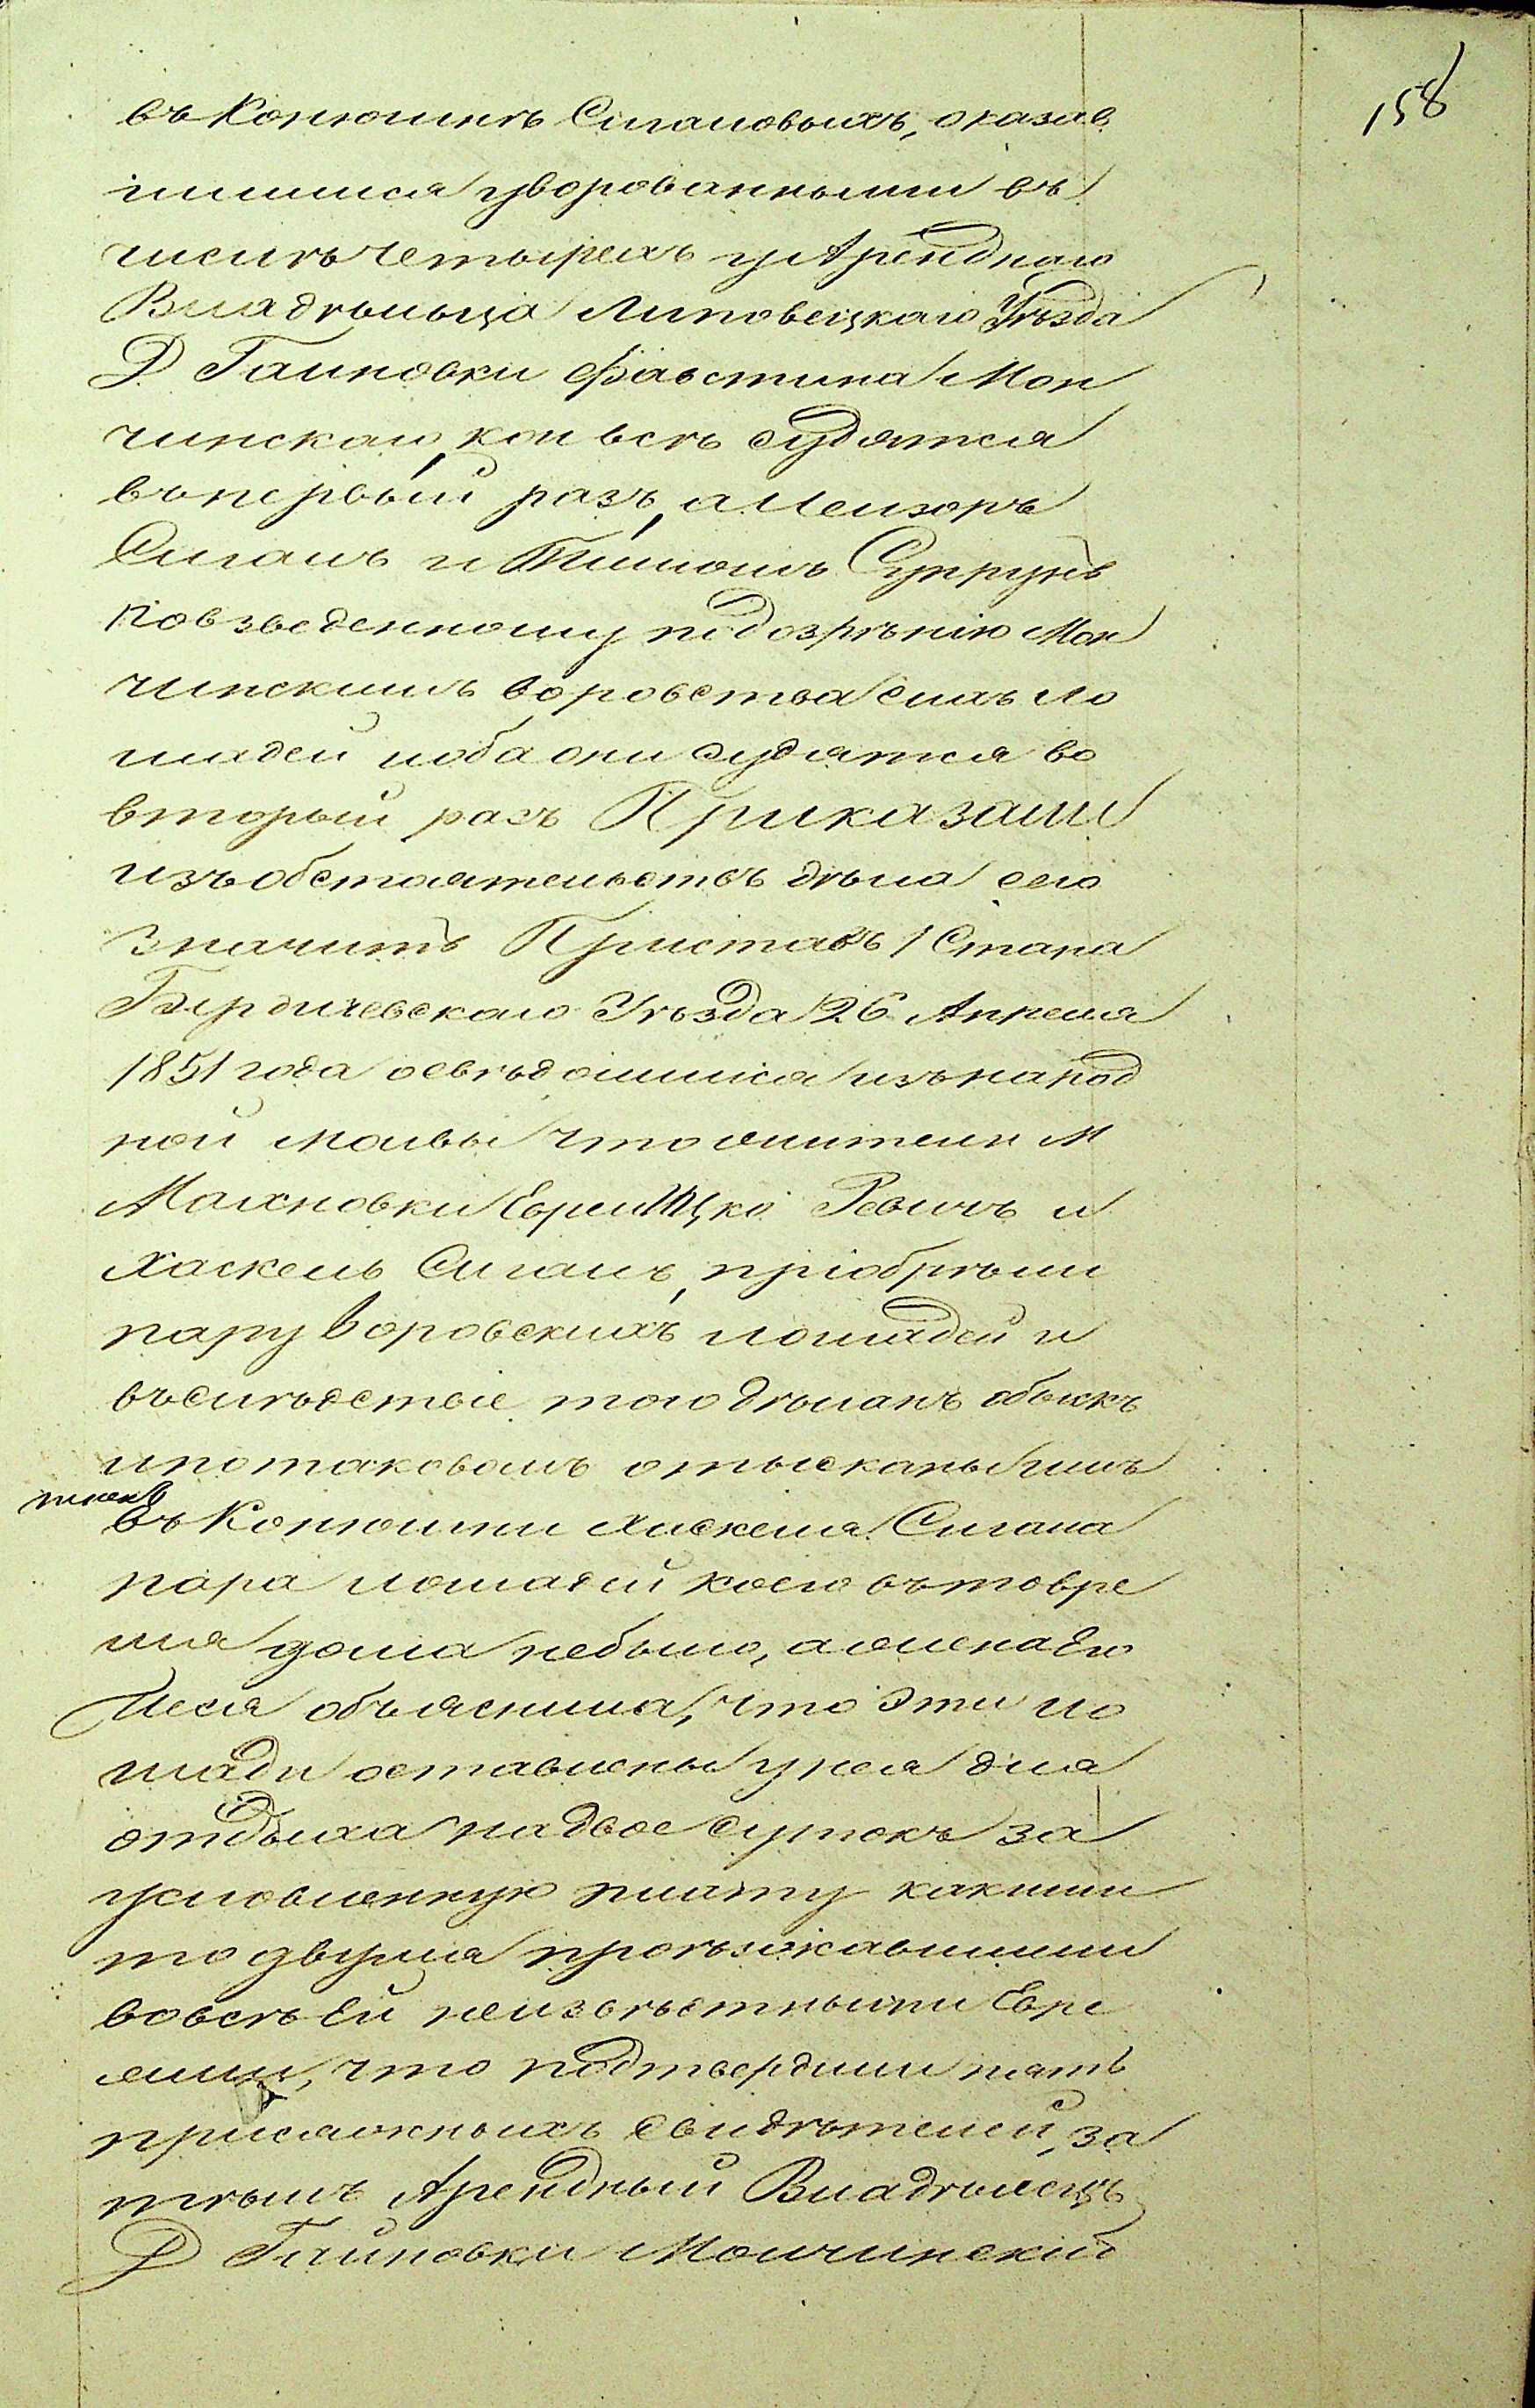 158
въ Конюшнѣ Сигаловыхъ, оказав
шимися уворованными въ
числѣ четырехъ у Аренднаго
Владѣльца Липовецкаго Уѣзда
Д Гайновки Фаостина Мон
чинскаго, кои всѣ судятся
въ первый разъ, а Лейзоръ
Сигалъ и Тимошъ Супрунъ
по взведенному подозрѣнію Мон
чинскимъ воровства сихъ ло
шадей и оба они судятся во
вторый разъ Приказали
изъ обстоятельствъ дѣла сего
значитъ Приставъ 1 Стана
Бердичевскаго Уѣзда 26 Апреля
1851 года освѣдомился изъ народ
ной молвы что жители М
Махновки Евреи Ицко Ревичъ и
Хаскель Сигалъ, пріобрѣли
пару воровскихъ лошадей и
въслѣдствіе того дѣланъ обыскъ
и по таковомъ отысканы имъ
въ Конюшни Хаскеля Сигала
пара лошадей коего въ то вре
мя дома небыло, а жена Его
Песя объяснила, что эти ло
шади оставлены у нея для
отдыха на двое сутокъ за
условленную плату какими
то двумя проѣзжавшими
вовсѣ Ей неизвѣстными Евре
ями, что подтвердили пять
присяжныхъ свидѣтелей, за
тѣмъ Арендный Владѣлецъ
Д Гайновки Мончинскій